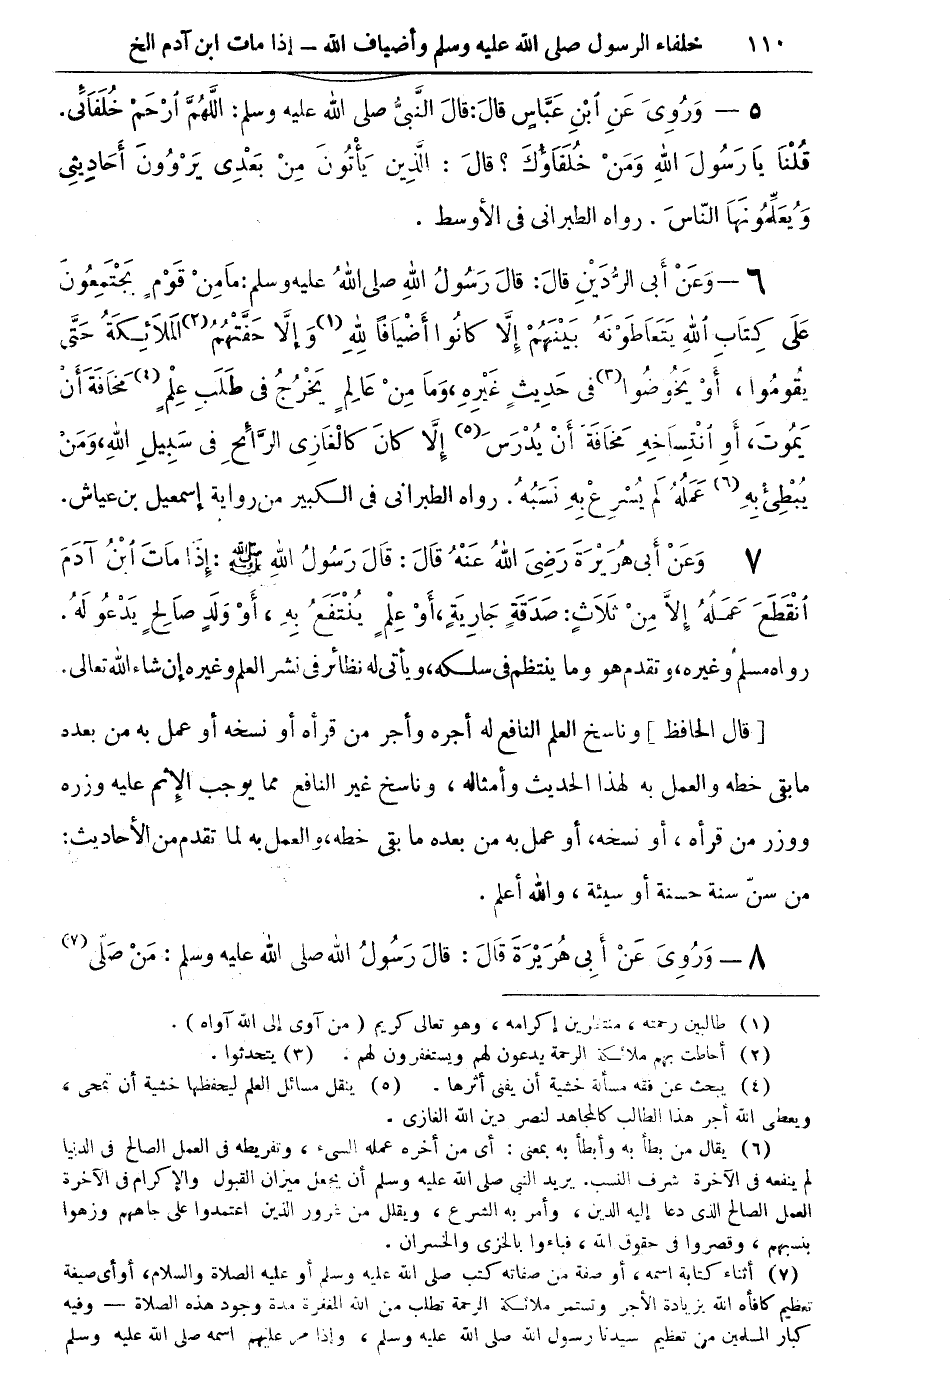 ١١٠ خلفاء الرسول صلى الله عليه وسلم وأضياف الله – إذا مات ابن آدم الخ
٥ – وَرُوِىَ عَنِ ٱبْنِ عَبَّاسٍ قالَ: قالَ النَّبِىُّ صلى الله عليه وسلم: اللَّهُمَّ ٱرْحَمْ خُلَفَائِى.
قُلْنَا يَا رَسُولَ اللهِ وَمَنْ خُلَفَاؤُكَ ؟ قالَ : الَّذِينَ يَأْتُونَ مِنْ بَعْدِى يَرْوُونَ أَحَادِيثِى
وَيُعَلِّمُونَهَا النَّاسَ . رواه الطبرانى فى الأوسط .
٦ – وَعَنْ أَبِى الرُّدَيْنِ قالَ: قالَ رَسُولُ اللهِ صلى اللهُ عليه وسلم: مَا مِنْ قَوْمٍ يَجْتَمِعُونَ
عَلَى كِتَابِ ٱللهِ يَتَعَاطَوْنَهُ بَيْنَهُمْ إِلَّا كَانُوا أَضْيَافاً لِلهِ (١) وَ إِلَّا حَفَّتْهُمُ (٢) المَلَائِكَةُ حَتَّى
يقُومُوا ، أَوْ يَخُوضُوا (٣) فى حَدِيثٍ غَيْرِهِ، وَمَا مِنْ عَالِمٍ يَخْرُجُ فى طَلَبِ عِلْمٍ (٤) مَخَافَةَ أَنْ
يَمُوتَ، أَوِ ٱنْتِسَاخِهِ مَخَافَةَ أَنْ يُدْرَسَ (٥) إِلَّا كَانَ كَالْغَازِى الرَّائِحِ فى سَبِيلِ اللهِ، وَمَنْ
يُبْطِئْ بِهِ (٦) عَمَلُهُ لَمْ يُسْرِعْ بِهِ نَسَبُهُ . رواه الطبرانى فى الكبير من رواية إسمعيل بن عياش.
٧ وَعَنْ أَبِى هُرَيْرَةَ رَضِىَ اللهُ عَنْهُ قَالَ : قَالَ رَسُولُ اللهِ ﷺ : إِذَا مَاتَ ٱبْنُ آدَمَ
ٱنْقَطَعَ عَمَلُهُ إِلاَّ مِنْ ثَلَاثٍ: صَدَقَةٍ جَارِيَةٍ، أَوْ عِلْمٍ يُنْتَفَعُ بِهِ ، أَوْ وَلَدٍ صَالِحٍ يَدْعُو لَهُ .
رواه مسلم وغيره، وتقدم هو وما ينتظم فى سلكه، ويأتى له نظائر فى نشر العلم وغيره إن شاء الله تعالى.
[ قال الحافظ ] وناسخ العلم النافع له أجره وأجر من قرأه أو نسخه أو عمل به من بعده
مابقى خطه والعمل به لهذا الحديث وأمثاله ، وناسخ غير النافع مما يوجب الإثم عليه وزره
ووزر من قرأه ، أو نسخه، أو عمل به من بعده ما بقى خطه، والعمل به لما تقدم من الأحاديث:
من سنّ سنة حسنة أو سيئة ، والله أعلم .
٨ – وَرُوِىَ عَنْ أَبِى هُرَيْرَةَ قَالَ : قالَ رَسُولُ اللهِ صلى الله عليه وسلم : مَنْ صَلَّى (٧)
(١) طالبين رحمته ، منتظرين إكرامه ، وهو تعالى كريم ( من آوى إلى الله آواه ) .
(٢) أحاطت بهم ملائكة الرحمة يدعون لهم ويستغفرون لهم . (٣) يتحدثوا .
(٤) يبحث عن فقه مسألة خشية أن يفنى أثرها . (٥) ينقل مسائل العلم ليحفظها خشية أن تمحى ،
ويعطى الله أجر هذا الطالب كالمجاهد لنصر دين الله الغازى .
(٦) يقال من بطأ به وأبطأ به بمعنى : أى من أخره عمله السيء ، وتفريطه فى العمل الصالح فى الدنيا
لم ينفعه فى الآخرة شرف النسب. يريد النبى صلى الله عليه وسلم أن يجعل ميزان القبول والإكرام فى الآخرة
العمل الصالح الذى دعا إليه الدين ، وأمر به الشرع ، ويقلل من غرور الذين اعتمدوا على جاههم وزهوا
بنسبهم ، وقصروا فى حقوق الله ، فباءوا بالخزى والخسران .
(٧) أثناء كتابة اسمه ، أو صفة من صفاته كتب صلى الله عليه وسلم أو عليه الصلاة والسلام، أو أى صيغة
تعظيم كافأه الله بزيادة الأجر وتستمر ملائكة الرحمة تطلب من الله المغفرة مدة وجود هذه الصلاة – وفيه
كبار المسلمين من تعظيم سيدنا رسول الله صلى الله عليه وسلم ، وإذا مر عليهم اسمه صلى الله عليه وسلم